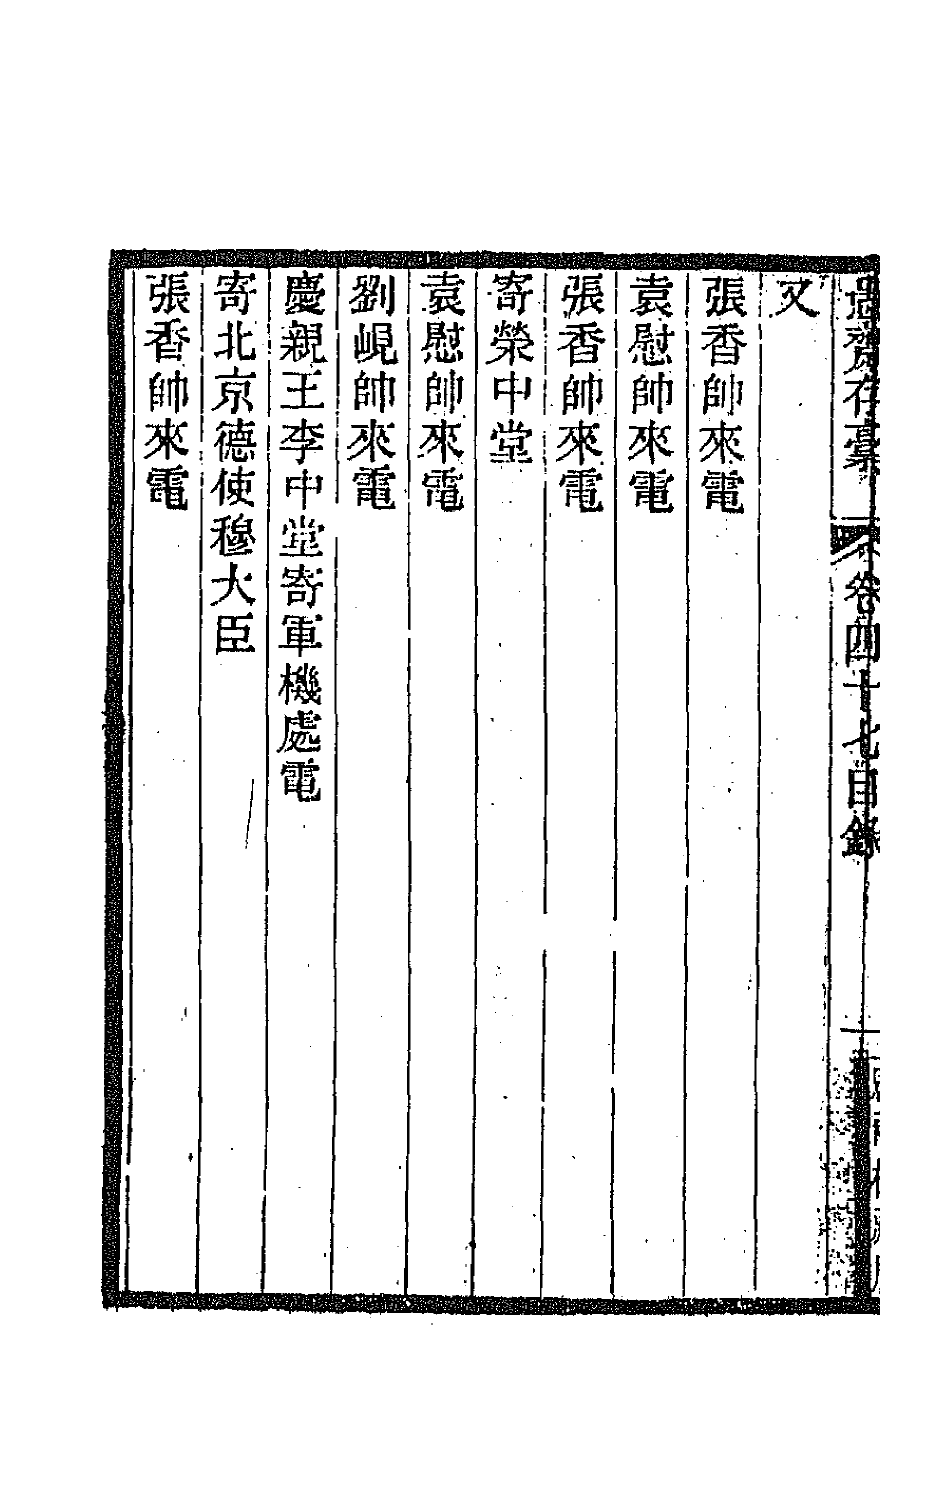 愚齋存稾
卷四十七目錄
又
張香帥來電
袁慰帥來電
張香帥來電
寄榮中堂
袁慰帥來電
劉峴帥來電
慶親王李中堂寄軍機處電
寄北京德使穆大臣
張香帥來電